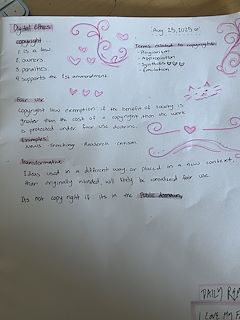 Digital Ethics
Aug 25, 2025
copyright
1. is a law
2. owners
3. penalties
4. supports the 1st ammendment
Terms related to copyright:
• Plagiarism
• Appropriation
• Synthesis
• Emulation
Fair use
Copyright law exemption: if the benefit of using is
greater than the cost of a copyright, then the work
is protected under fair use doctrine.
Examples:
News Teaching Research
Transformative
Ideas used in a different way, or placed in a new context,
than originally intended, will likely be considered fair use.
Its not copy right if its in the public domain
DAILY RE
I LOVE MY F